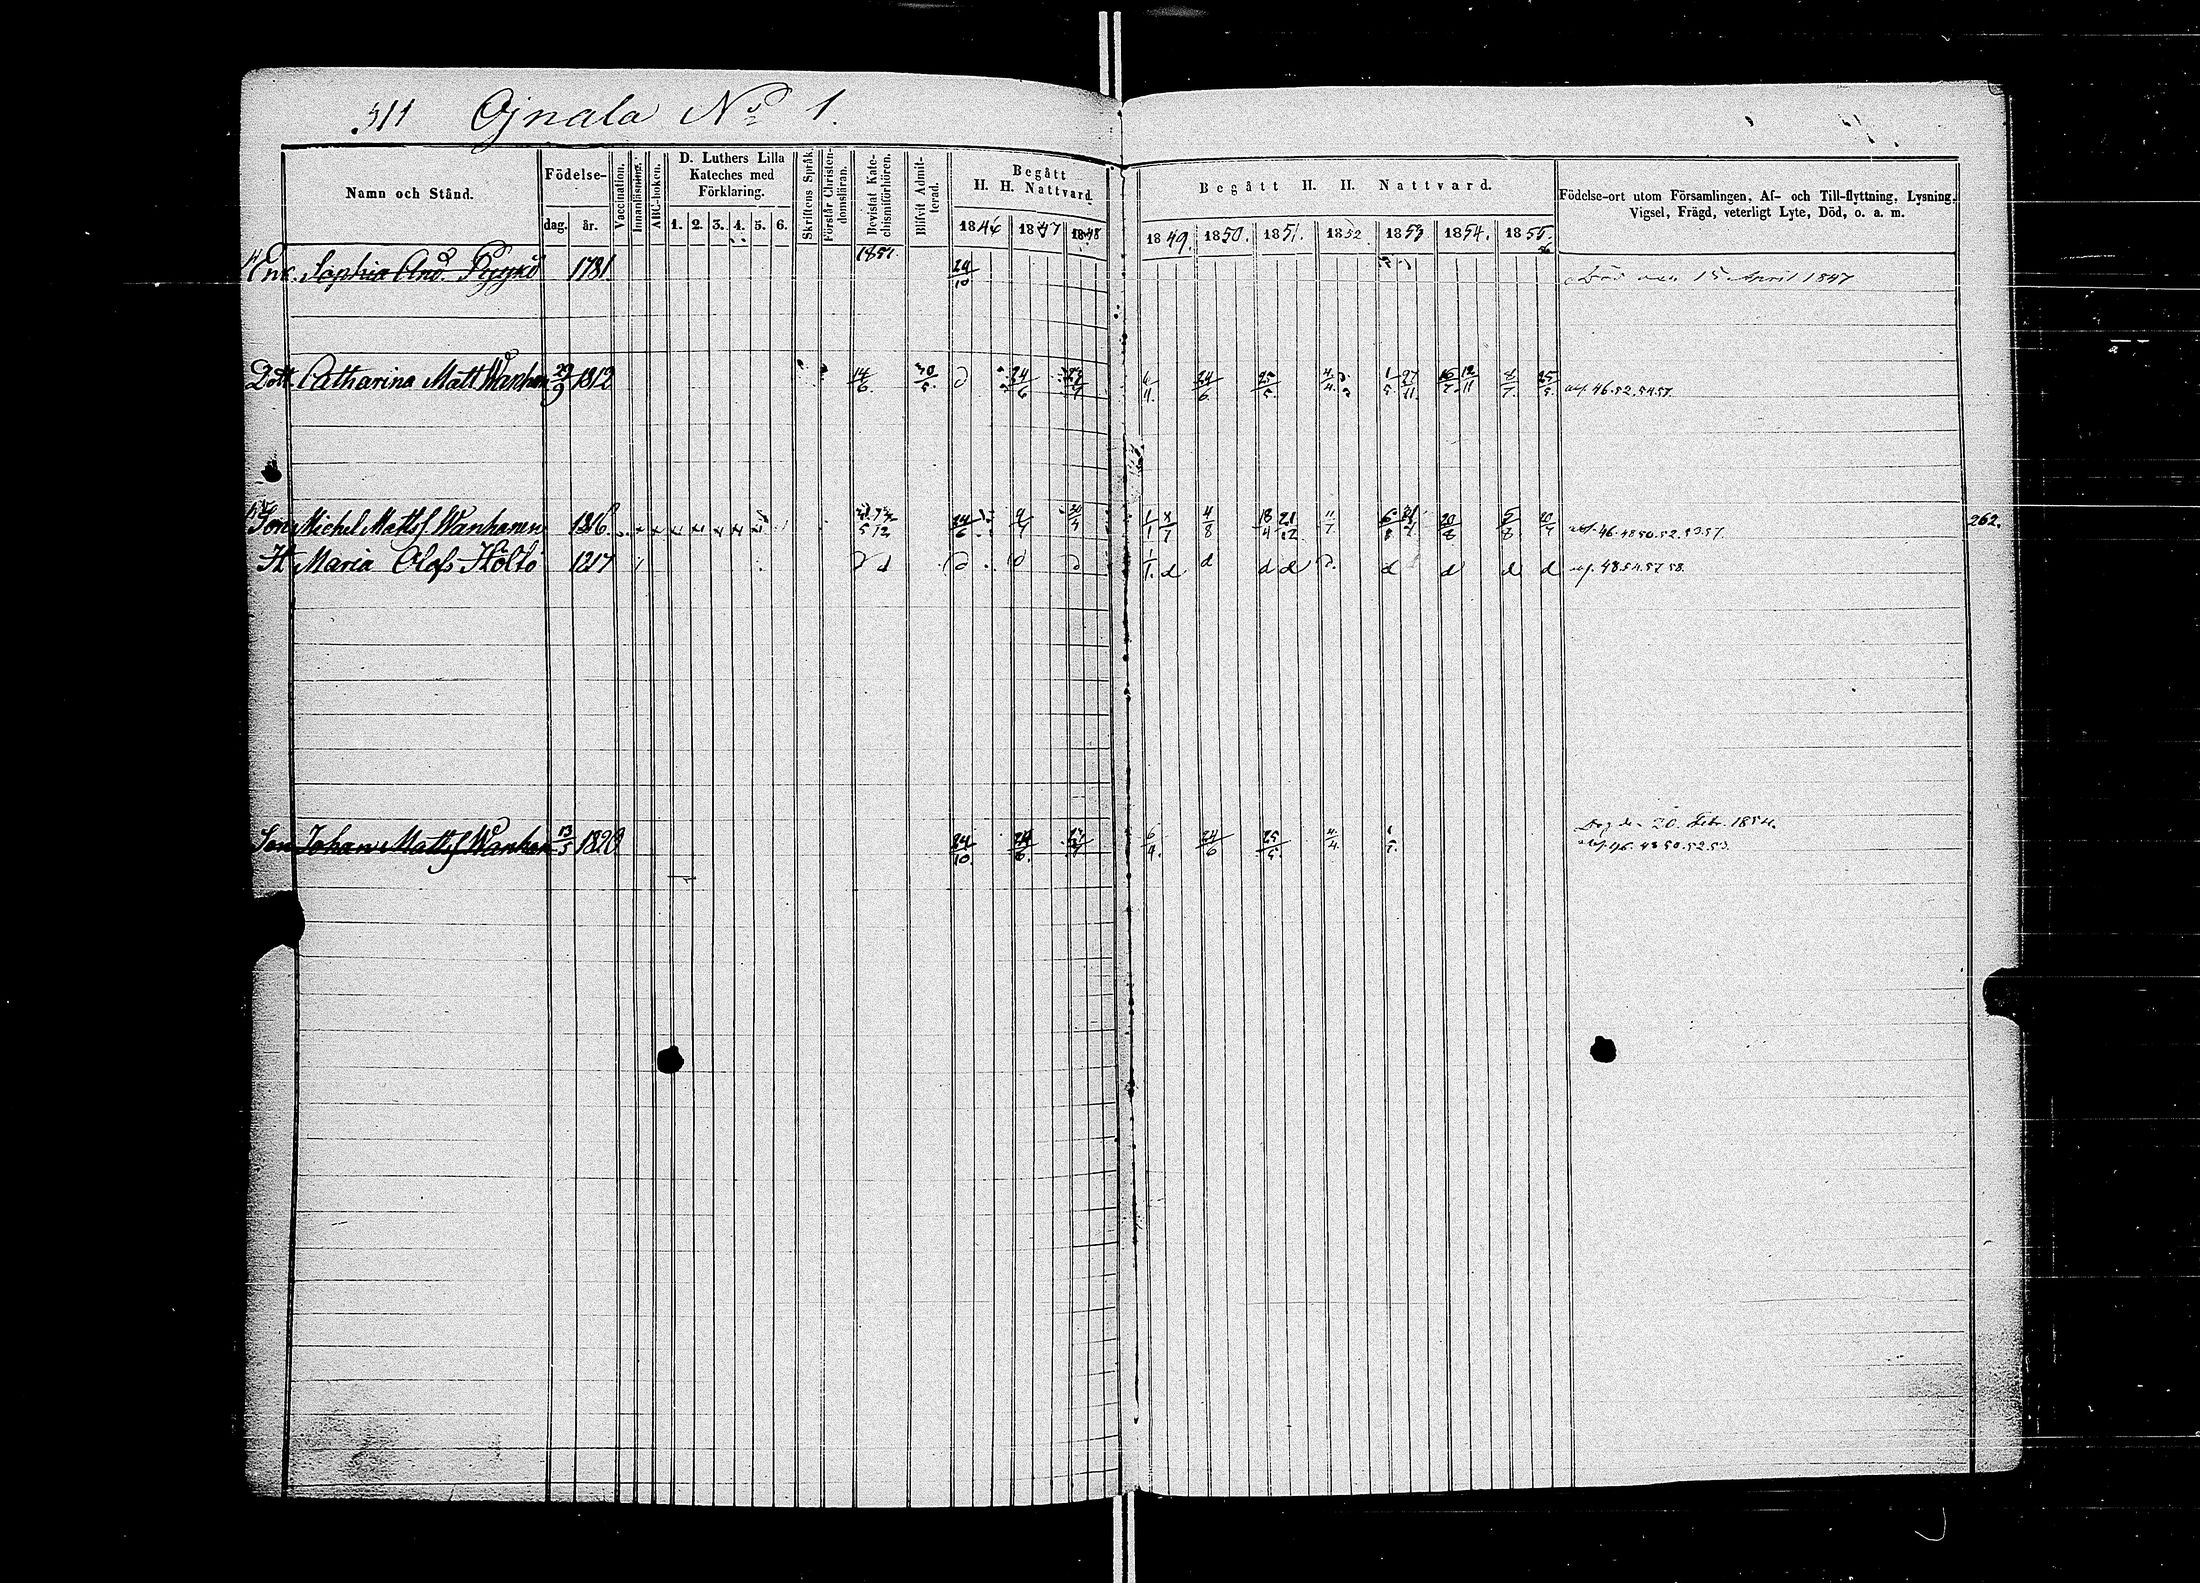 511 Ojnala No 1.
Namn och Stånd. Födelse- dag. år. Vaccination. Innanläsning. ABC-boken. D. Luthers Lilla Kateches med Förklaring. 1. 2. 3. 4. 5. 6. Skriftens Språk. Förstår Christendomsläran. Bevistat Katechismiförhören. Blifvit Admitterad. Begått H. H. Nattvard. 1846 1847 1848
Begått H. H. Nattvard. 1849. 1850. 1851. 1852 1853 1854. 1855. 56
Födelse-ort utom Församlingen, Af- och Till-flyttning, Lysning,
Vigsel, Frägd, veterligt Lyte, Död, o. a. m.
Enk. Sophia And. 1781 1851. 24/10 Död den 15 April 1847
Dott. Catharina Matt Wanhan 29/9 1812 14/6 d 24/6 6/4. 24/6 25/5 4/4. 1/5 27/11 16/7 12/11 8/7. 25/5. abs. 46.52.54.57.
Son Michel Mattsf Wanhanen 1816 24/6 1/1 8/7 4/8 18/4 21/12 11/7. 20/8 5/8 abs. 46.48 50.52.53.57. 262.
H. Maria Olofs Hölttö 1817 d d d d d 1/1. d d d d d. d d d d abs. 48.54.57 58.
Son Johan Mattsf Wanhan 13/5 1820 24/10 24/6. 6/4. 24/6 25/5. 4/4. 1/5. Dog den 20. Febr. 1854.
abs. 46. 48 50.52.53.